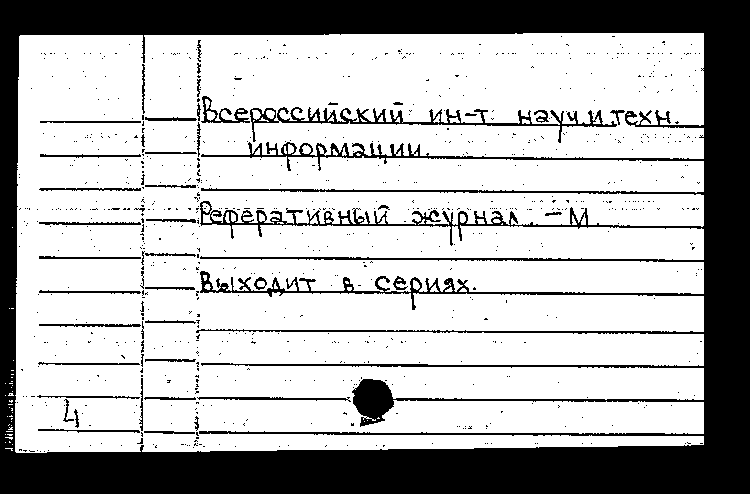 Всероссийский ин-т науч.и техн.
информации.
Реферативный журнал. – М.
Выходит в сериях.
4